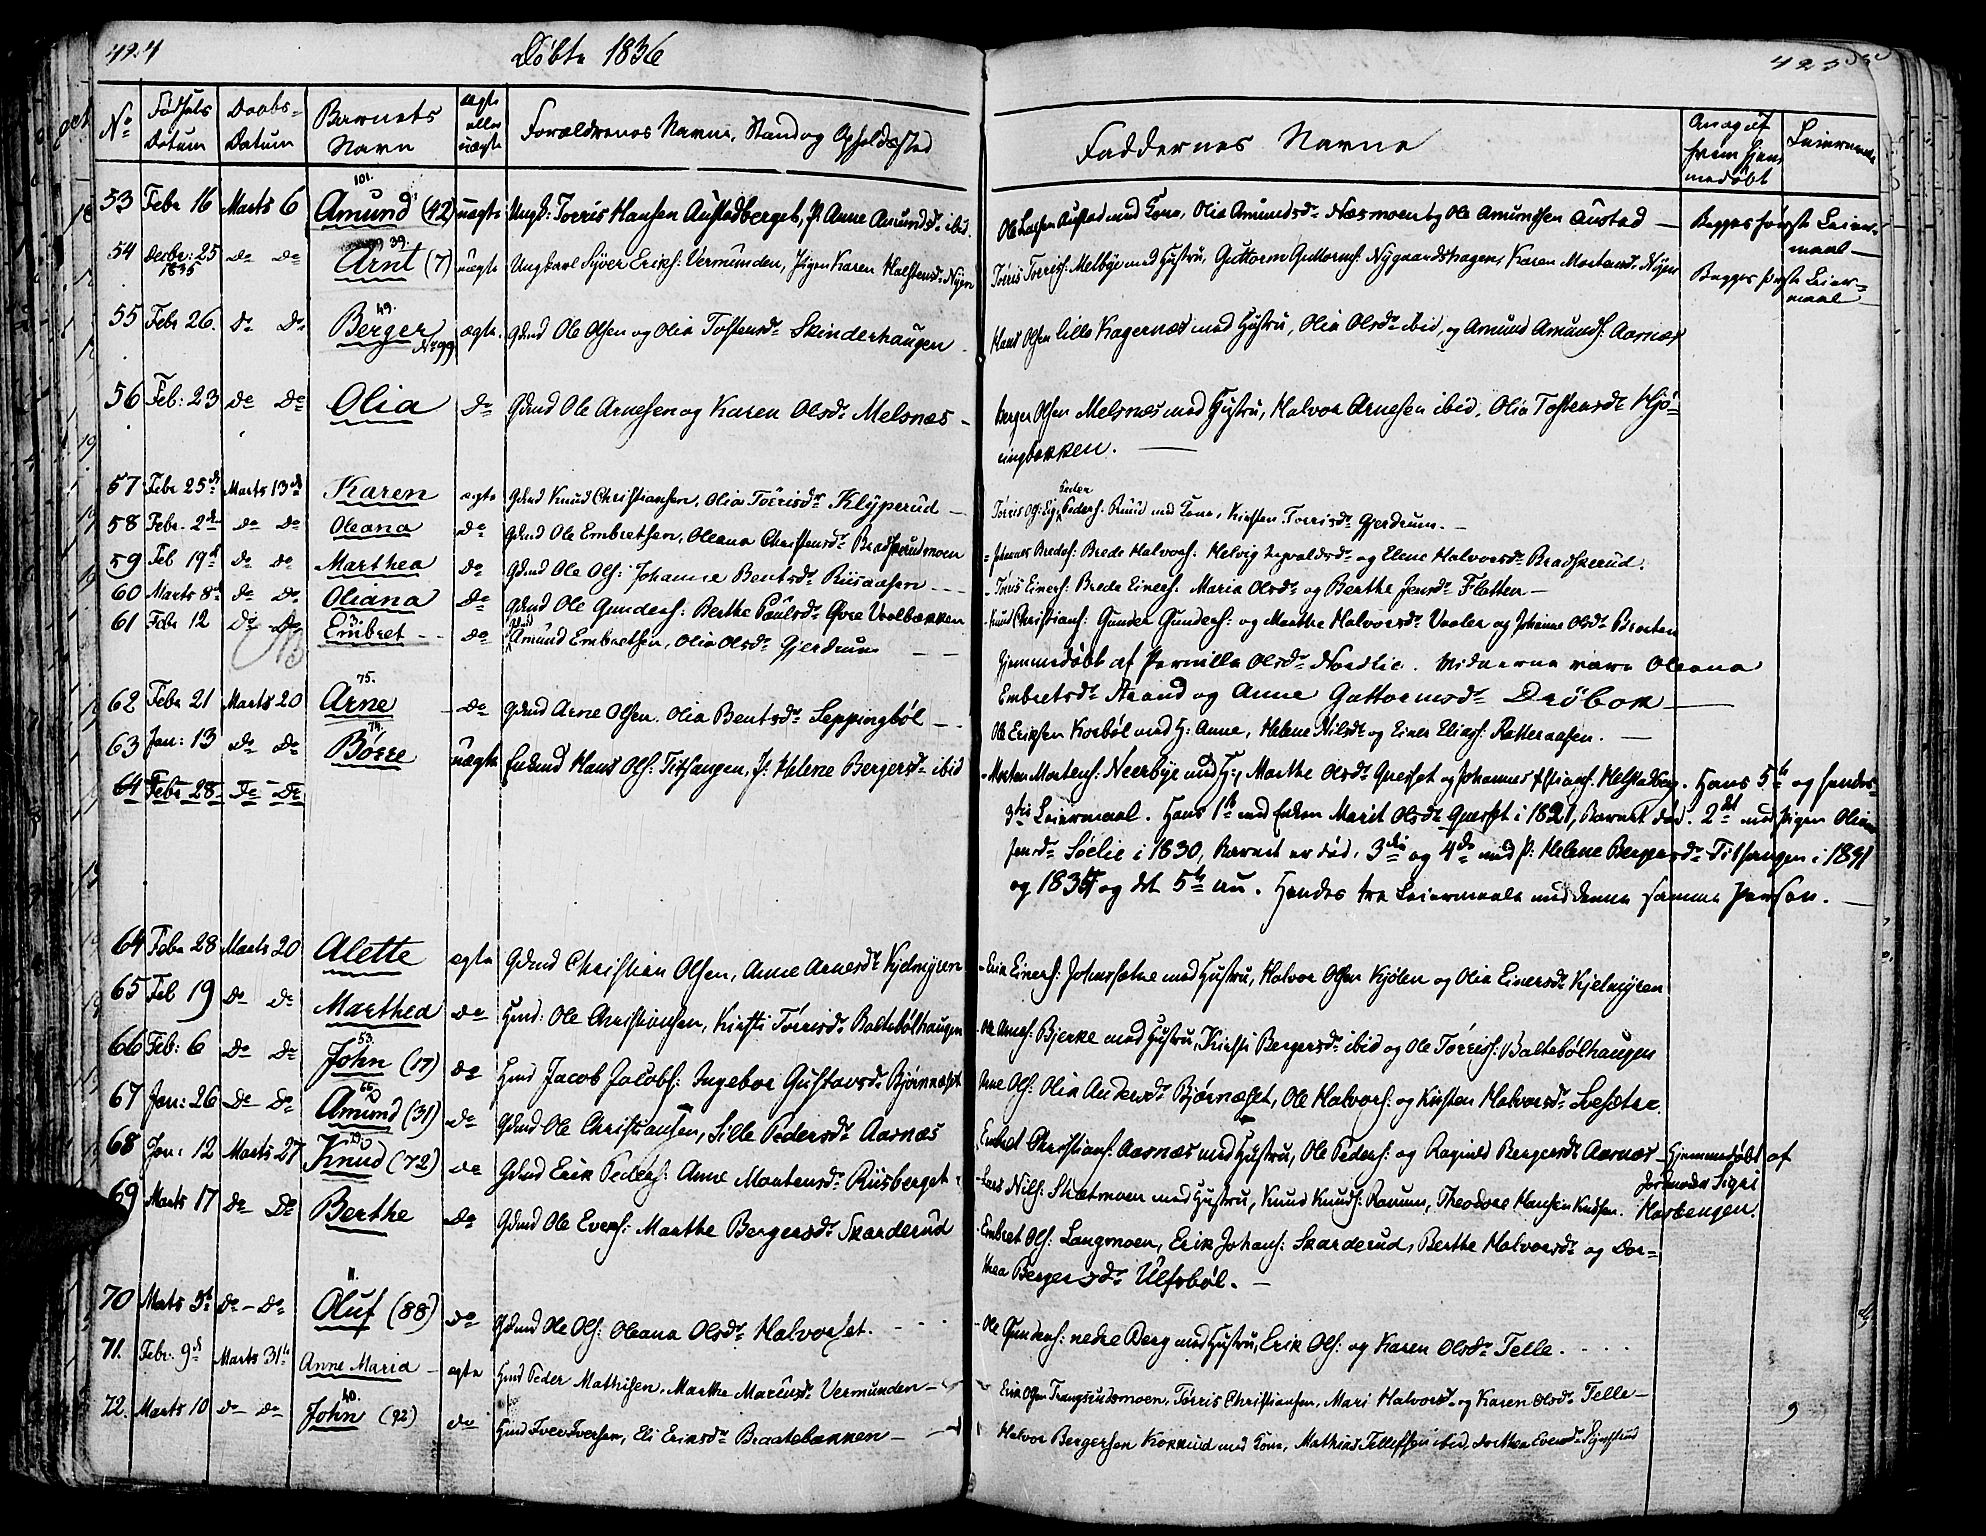 424
Døbte 1836
No
Fødsels Datum
Daabs- Datum
Barnets Navn
ægte eller uægte
Forældrenes Navne, Stand og Opholdssted
Faddernes Navne
Om og af hvem hjemmedøbt
Leiermaal
53 Febr 16 Marts 6 Amund (42) uægte Ungk: Torris Hansen Austadberget, P. Anne Amundsdr ibid.
101.
Ole Larsen Austad med Kone, Olia Amundsdr Næsmoen og Ole Amundsen Austad — Begges første Leier-
maal —
54 Decbr: 25 1835 Do Do Arnt (7) uægte Ungkarl Syver Eriks: Vermunden, Pigen Karen Halstensdr Nyen
39.
Torris Torris: Melbye med Hustru, Guttorm Guttorms: Nygaardshagen, Karen Mortensdr Nyen Begges første Leier-
maal
55 Febr 26. Do Do Berger ægte. Gdmd Ole Olsen og Olia Tostensdr Skinderhaugen
49.
No 99
Hans Olsen Lille Kagernæs med Hustru, Olia Olsdr ibid, og Amund Amunds: Aarnæs
56 Feb: 23 Do Do Olia Do Gdmd Ole Arnesen og Karen Olsdr Melsnæs -
Berger Olsen Melsnæs med Hustru, Halvor Arnesen ibid, Olia Tostensdr Kjø-
ingbakken. —
57 Febr 25de Marts 13de Karen ægte Gdmd Knud Christiansen, Olia Torrisdr Klyperud -
Peders: Ruud med Kone, Kirsten Torrisdr Gjerdrum. -
58 Febr. 2de Do Do Oleana Do Gdmd Ole Embretsen, Oleana Christensdr Bredskrudmoen
Johannes Bredes: Brede Halvors: Helvig Ingvaldsdr og Elene Halvorsdr Bredskrud.
59 Feb 19de Do Do Marthea Do Gdmd Ole Ols: Johanne Bentsdr Riisaasen - - -
Tøris Einers: Brede Einers: Maria Olsdr og Berthe Jensdr Flatten -
60 Marts 8de Do Do Oliana Do Gdmd Ole Gunders: Berthe Paulsdr Øvre Vaalbækken
Knud Christians: Gunder Gunders: og Marthe Halvorsdr Vaaler og Johanne Olsdr Braaten
61 Febr 12 Do Do Embret - - Do Amund Embretsen, Olia Olsdr Gjerdrum - -
3.
Hjemmedøbt af Pernille Olsdr Nordlie. Vidnerne vare Oleana
Embretsdr Strand og Anne Guttormsdr Drøbak —
62 Febr 21 Marts 20 Arne - Do Gdmd Arne Olsen. Olia Bentsdr Leppingbøl - -
75.
Ole Eriksen Korbøl med H: Anne, Helene Nilsdr og Einer Elias: Ratteraasen. —
63 Jan: 13 Do Do Børre uægte Enkmd Hans Ols: Tithaugen, P: Helene Bergersdr ibid
74.
Morten Mortens: Neerbye med H:, Marthe Olsdr Qverset og Johannes Kstians: Helstadberg. Hans 5te og hendes
3die Leiermaal. Hans 1ste med Enken Marit Olsdr Qverset i 1821, Barnet død. 2det med Pigen Oliana
Jensdr Sølie i 1830, Barnet er død. 3die og 4de med P: Helene Bergersdr Tithaugen i 1831
og 1835 og det 5te nu. Hendes tre Leiermaale med denne samme Person. —
64 Febr 28 Do Do
64 Febr 28 Marts 20 Alette ægte Gdmd Christian Olsen, Anne Arnesdr Kjelmyren
Erik Einers: Johnssætre med Hustru, Halvor Olsen Kjølen og Olia Einersdr Kjelmyren
65 Feb 19 Do Do Marthea Do Hmd: Ole Christiansen, Kirsti Torrisdr Baltebølhaugen
Ole Arnes: Bjerke med Hustru, Kirsti Bergersdr ibid og Ole Torris: Baltebølhaugen
66 Feb: 6 Do Do John (17) Do Hmd Jacob Jacobs: Ingebor Gustavsdr Bjørnæset
53.
Arne Ols: Olia Andersdr Bjørnæset, Ole Halvors: og Kirsten Halvorsdr Sæter.
67 Jan: 26 Do Do Amund (31) Do Gdmd Ole Christiansen, Sille Pedersdr Aarnæs
66
Embret Christians: Aarnæs med Hustru, Ole Peders: og Ragnild Bergersdr Aarnæs —
68 Jan: 12 Marts 27 Knud (72) Do Gdmd Erik Peders: Anne Mortensdr Riisberget -
Lars Nils: Skætmoen med Hustru, Knud Knuds: Ramm, Theodore Hansen Knuhsen. Hjemmedøbt af
Jormoder Sigri
Harbengen.
69 Marts 17 Do Do Berthe Do Gdmd Ole Evens: Marthe Bergersdr Skarderud
Embret Ols: Langmoen, Erik Johans: Skarderud, Berthe Halvorsdr og Dor-
thea Bergersdr Ulfsbøl. —
70 Marts 5te Do - Do Oluf (88) Do Gdmd Ole Ols: Oleana Olsdr Halvorset. - - -
11.
Ole Gunders: nedre Berg med Hustru, Erik Ols: og Karen Olsdr Telle. - - - -
71. Febr. 9de Marts 31te Anne Maria - ægte Hmd Peder Mathisen, Marthe Mariusdr Vermunden -
Erik Olsen Trangsrudsmoen, Tørris Christiansen, Mari Halvorsdr og Karen Olsdr Telle -
72. Marts 10 Do Do John (92) Do Hmd Iver Iversen, Eli Eriksdr Braatebakken -
40.
Halvor Bergersen Kokkrud med Kone, Mathias Tellefsen ibid, Dorthea Evensdr